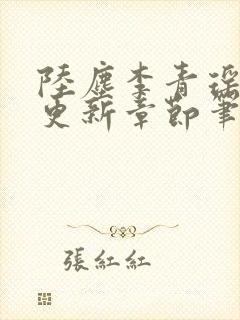 陸塵李青瑶
更新章節筆
張紅紅